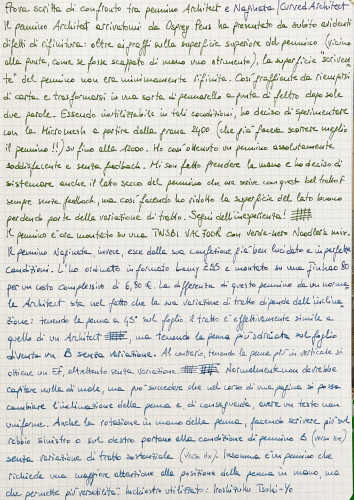 Prova scritta di confronto tra pennino Architect e Naginata/Curved Architect
Il pennino Architect arrivatomi da Osprey Pens ha presentato da subito evidenti
difetti di rifinitura: oltre ai graffi sulla superficie superiore del pennino (vicino
alla punta, come se fosse scappato di mano uno strumento), la superficie scriven-
te del pennino non era minimamente rifinita. Così graffiante da riempirsi
di carta e trasformarsi in una sorta di pennarello a punta di feltro dopo sole
due parole. Essendo inutilizzabile in tali condizioni, ho deciso di sperimentare
con la Micromesh a partire dalla grana 2400 (che già faceva scorrere meglio
il pennino!!) su fino alla 12000. Ho così ottenuto un pennino assolutamente
soddisfacente e senza feedback. Mi son fatto prendere la mano e ho deciso di
sistemare anche il lato secco del pennino che ora scrive con quest bel tratto EF
sempre senza feedback, ma così facendo ho ridotto la superficie del lato buono
perdendo parte della variazione di tratto. Segni dell'inesperienza!
Il pennino è ora montato su una TWSBI VAC 700R con verde-nero Noodler's mix.
Il pennino Naginata, invece, esce dalla sua confezione già ben lucidato e in perfette
condizioni. L'ho ordinato in formato Lamy Z55 e montato su una Jinhao 80
per un costo complessivo di 6,80 €. La differenza di questo pennino da un norma-
le Architect sta nel fatto che la sua variazione di tratto dipende dall'inclina-
zione: tenendo la penna a 45° sul foglio il tratto è effettivamente simile a
quello di un Architect, ma tenendo la penna più sdraiata sul foglio
diventa un B senza variazione. Al contrario, tenendo la penna più in verticale si
ottiene un EF, altrettanto senza variazione. Normalmente non dovrebbe
capitare nulla di male, ma può succedere che nel corso di una pagina si possa
cambiare l'inclinazione della penna e, di conseguenza, avere un testo non
uniforme. Anche la rotazione in mano della penna, facendo scrivere più sul
rebbio sinistro o sul destro portano alla condizione di pennino B (verso sx)
senza variazione di tratto sostanziale (verso dx). Insomma è un pennino che
richiede una maggiore attenzione alla posizione della penna in mano, ma
che permette più versatilità. Inchiostro utilizzato: Iroshizuku Tsuki-Yo